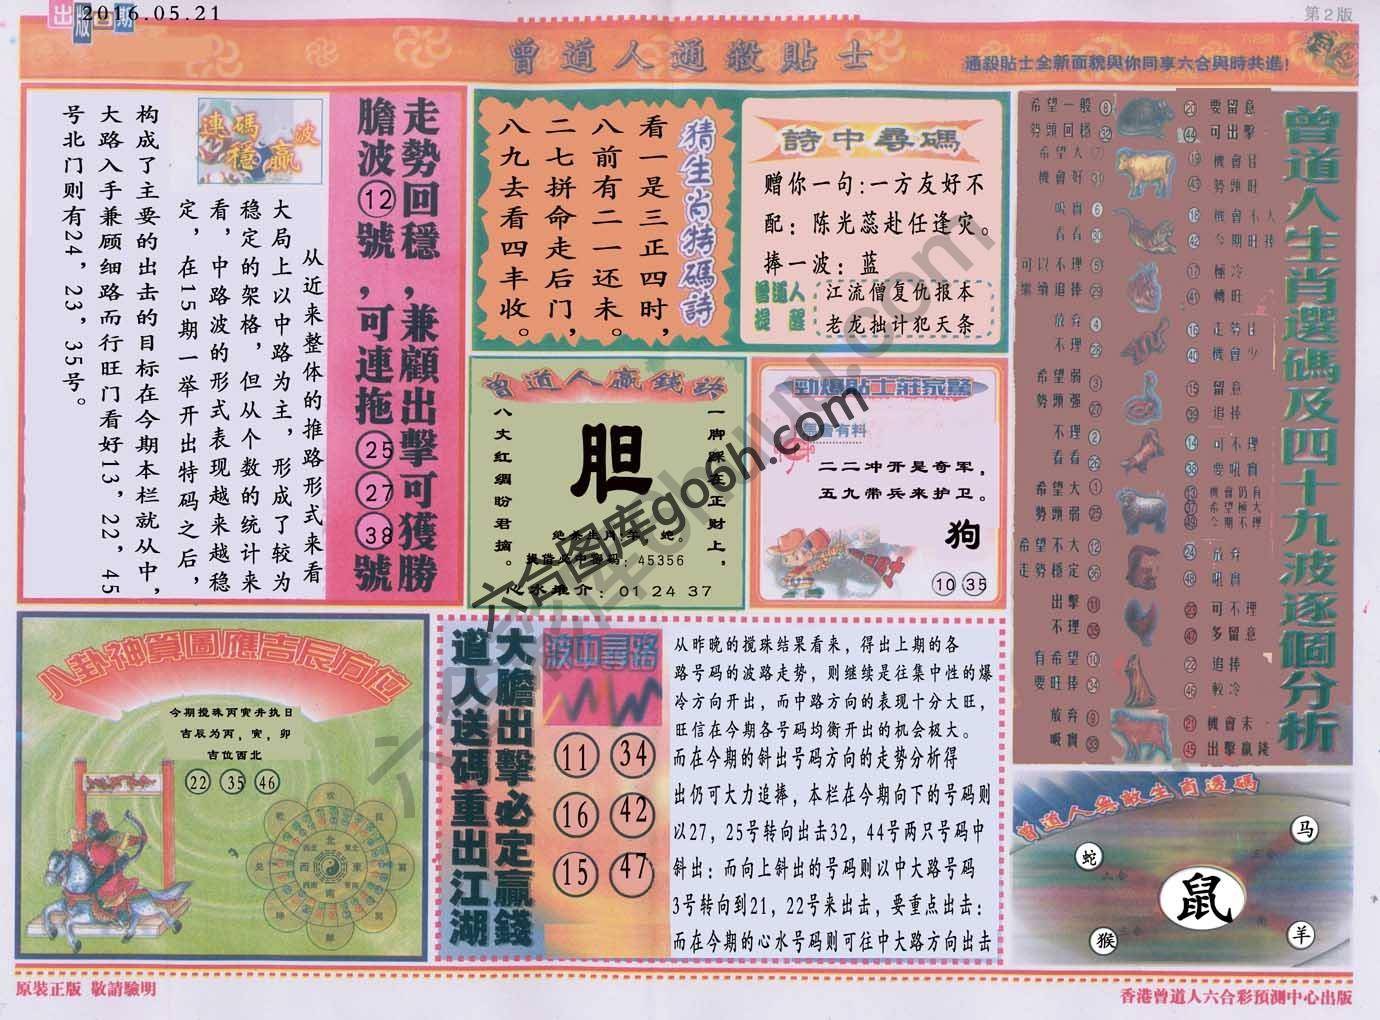 出版日期
2016.05.21
第2版
曾道人通殺貼士
通殺貼士全新面貌與你同享六合與時共進!
走勢回穩,兼顧出擊可獲勝
膽波⑫號,可連拖㉕㉗㊳號
連碼 波
穩 贏
从近来整体的推路形式来看
大局上以中路为主,形成了较为
稳定的架格,但从个数的统计来
看,中路波的形式表现越来越稳
定,在15期一举开出特码之后,
构成了主要的出击的目标在今期本栏就从中,
大路入手兼顾细路而行旺门看好13,22,45
号北门则有24,23,35号。
猜生肖特碼詩
看一是三正四时,
八前有二一还未。
二七拼命走后门,
八九去看四丰收。
詩中尋碼
赠你一句:一方友好不
配:陈光蕊赴任逢灾。
捧一波:蓝
曾道人
提 醒
江流僧复仇报本
老龙拙计犯天条
曾道人贏錢詩
一脚踩在正财上,
八丈红绸盼君摘。
胆
绝杀生肖:羊、蛇。
提借必中密码:45356
心水推介:01 24 37
勁爆貼士莊家驚
有料
二二冲开是奇军,
五九带兵来护卫。
狗
10 35
曾道人生肖選碼及四十九波逐個分析
希望一般 ⑧ ⑳ 要留意
勢頭回穩 ㉜ ㊹ 可出擊
希望大 ⑦ ⑲ 機會好
機會好 ㉛ ㊸ 勢頭旺
吸實 ⑥ ⑱ 機會不大
看看 ㉚ ㊷ 今期旺捧
可以不理 ⑤ ⑰ 極冷
繼續追捧 ㉙ ㊶ 轉旺
放弃 ④ ⑯ 走勢佳
不理 ㊵ 機會少
希望弱 ③ ⑮ 留意
勢頭强 ㉗ ㊴ 追捧
不理 ② ⑭ 可不理
看看 ㉖ ㊳ 要吼實
希望大 ① ⑬ 機會仍有
勢頭弱 ㉕ ㊲ 希望極大
㊾ 今期不理
希望不大 ⑫ ㉔ 放弃
走勢穩定 ㊱ ㊽ 吼實
出擊 ⑪ ㉓ 可不理
不理 ㉟ ㊼ 多留意
有希望 ⑩ ㉒ 追捧
要旺捧 ㉞ ㊻ 較冷
放弃 ⑨ ㉑ 機會末
吸實 ㉝ ㊺ 出擊贏錢
八卦神算圖應吉辰方位
今期搅珠丙寅井执日
吉辰为丙,寅,卯
吉位西北
22 35 46
北
西 東
南
大膽出擊必定贏錢
道人送碼重出江湖
波中尋路
11 34
16 42
15 47
从昨晚的搅珠结果看来,得出上期的各
路号码的波路走势,则继续是往集中性的爆
冷方向开出,而中路方向的表现十分大旺,
旺信在今期各号码均衡开出的机会极大。
而在今期的斜出号码方向的走势分析得
出仍可大力追捧,本栏在今期向下的号码则
以27,25号转向出击32,44号两只号码中
斜出:而向上斜出的号码则以中大路号码
3号转向到21,22号来出击,要重点出击:
而在今期的心水号码则可往中大路方向出击
曾道人無敵生肖透碼
马
蛇
鼠
猴
羊
六合图库go6h.com
原裝正版 敬請驗明
香港曾道人六合彩預測中心出版